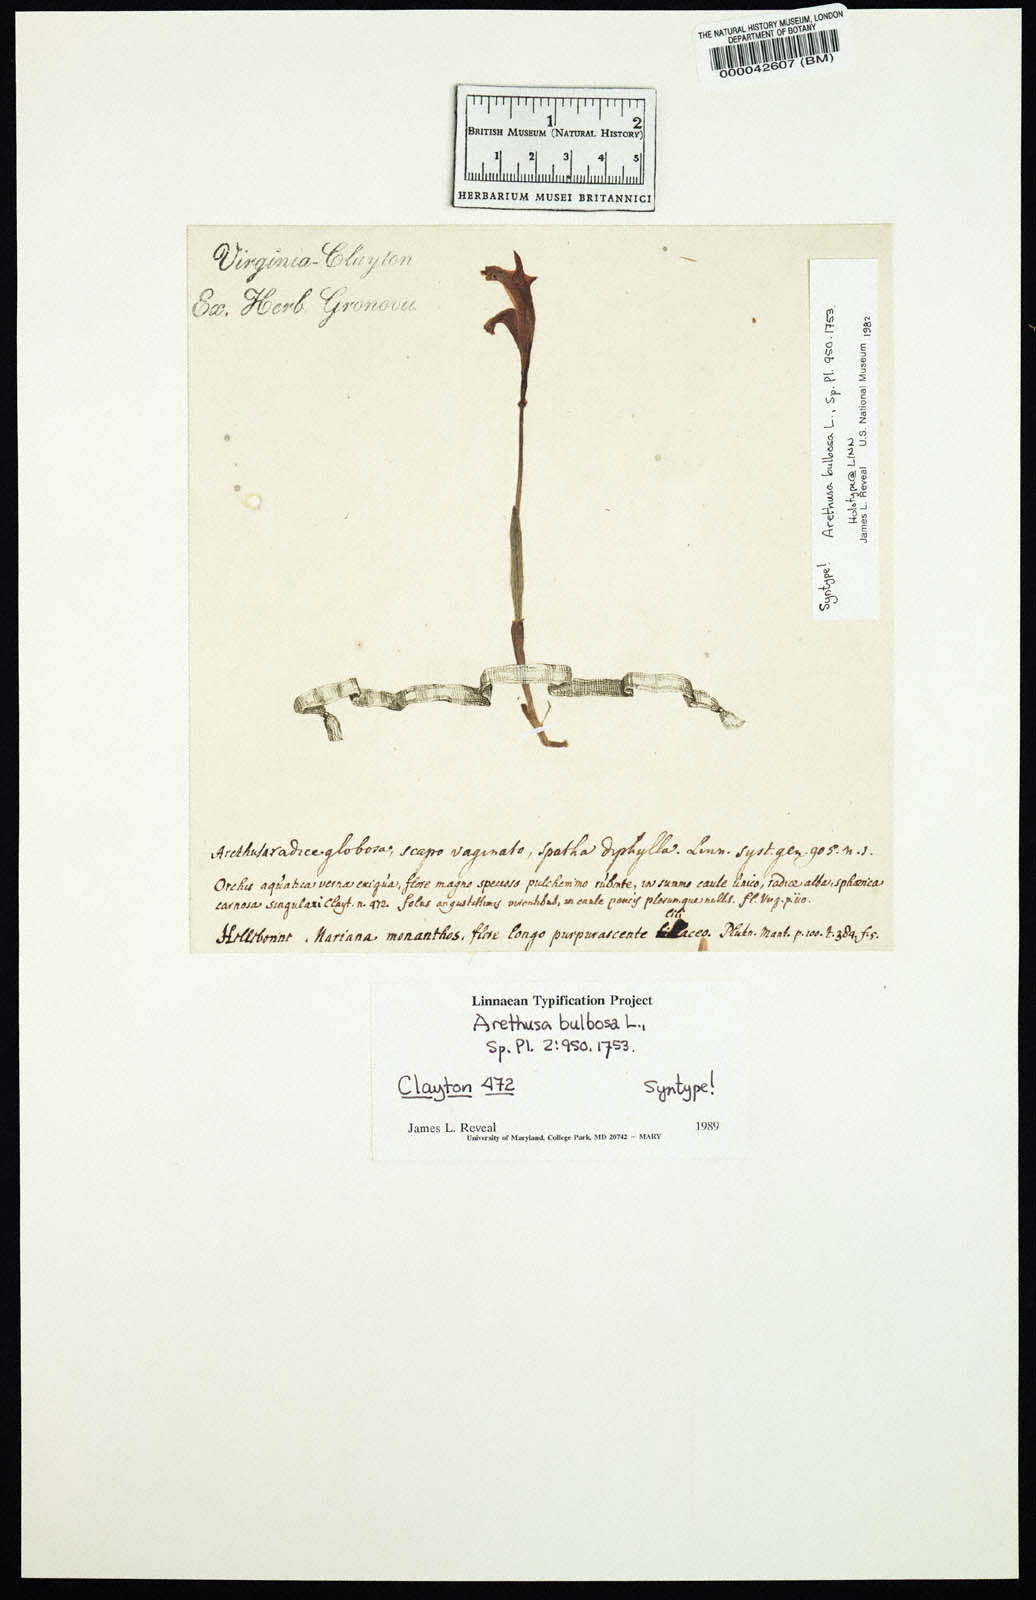 THE NATURAL HISTORY MUSEUM, LONDON
DEPARTMENT OF BOTANY
000042607 (BM)
1 2
BRITISH MUSEUM (NATURAL HISTORY)
1 2 3 4 5
HERBARIUM MUSEI BRITANNICI
Virginia-Clayton
Ex. Herb Gronovii
Syntype! Arethusa bulbosa L., Sp. Pl. 950. 1753.
Holotype@LINN
James L. Reveal U.S. National Museum 1982
Arethusa radice globosa, scapo vaginato, spatha diphylla. Linn. syst. gen. 905. n. 1.
Orchis aquatica verna exigua, flore magno specioso pulcherrimo rubente, in summo caule unico, radice alba, sphærica
carnosa singulari Clayt. n. 472. folus angustissimis virentibus, in caule paucis plerumque nullis. fl. Virg. p. 110.
Helleborine Mariana monanthos, flore longo purpurascente liliaceo. Plukn. Mant. p. 100. t. 384, f. 5.
Linnaean Typification Project
Arethusa bulbosa L.,
Sp. Pl. 2:950. 1753.
Clayton 472 Syntype!
James L. Reveal 1989
University of Maryland, College Park, MD 20742 – MARY